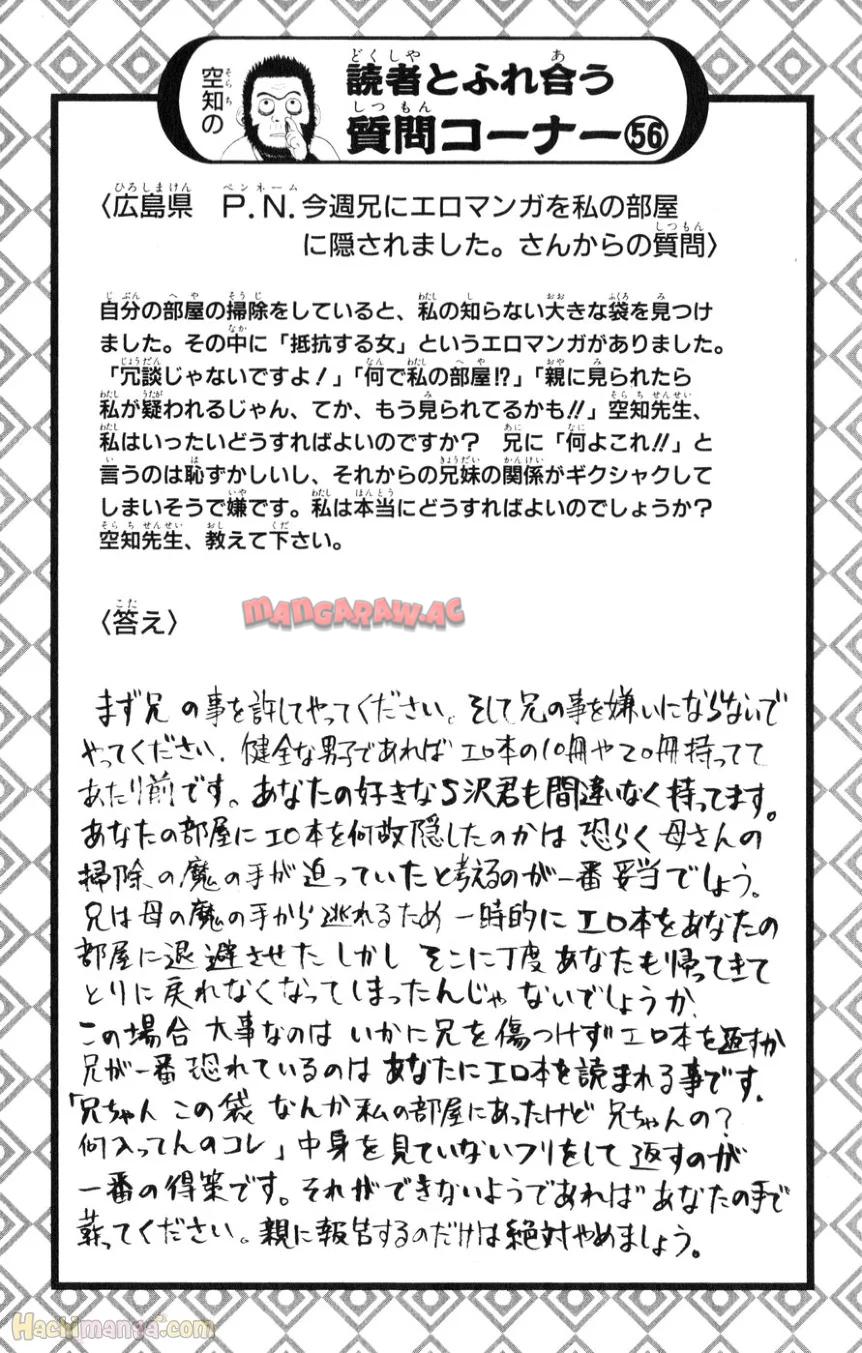 空知の
読者とふれ合う
質問コーナー㊻
〈広島県　P.N.今週兄にエロマンガを私の部屋
に隠されました。さんからの質問〉
自分の部屋の掃除をしていると、私の知らない大きな袋を見つけ
ました。その中に「抵抗する女」というエロマンガがありました。
「冗談じゃないですよ！」「何で私の部屋!?」「親に見られたら
私が疑われるじゃん、てか、もう見られてるかも!!」空知先生、
私はいったいどうすればよいのですか？　兄に「何よこれ!!」と
言うのは恥ずかしいし、それからの兄妹の関係がギクシャクして
しまいそうで嫌です。私は本当にどうすればよいのでしょうか？
空知先生、教えて下さい。
〈答え〉
MANGARAW.AC
まず兄の事を許してやってください。そして兄の事を嫌いにならないで
やってください。健全な男子であればエロ本の10冊や20冊持ってて
あたり前です。あなたの好きなS沢君も間違いなく持ってます。
あなたの部屋にエロ本を何故隠したのかは恐らく母さんの
掃除の魔の手が迫っていたと考えるのが一番妥当でしょう。
兄は母の魔の手から逃れるため一時的にエロ本をあなたの
部屋に退避させた しかし そこに丁度あなたも帰ってきて
とりに戻れなくなってしまったんじゃないでしょうか。
この場合 大事なのは いかに兄を傷つけずエロ本を返すか
兄が一番恐れているのはあなたにエロ本を読まれる事です。
「兄ちゃん この袋 なんか私の部屋にあったけど 兄ちゃんの？
何入ってんのコレ」中身を見ていないフリをして返すのが
一番の得策です。それができないようであればあなたの手で
葬ってください。親に報告するのだけは絶対やめましょう。
Hachimanga.com